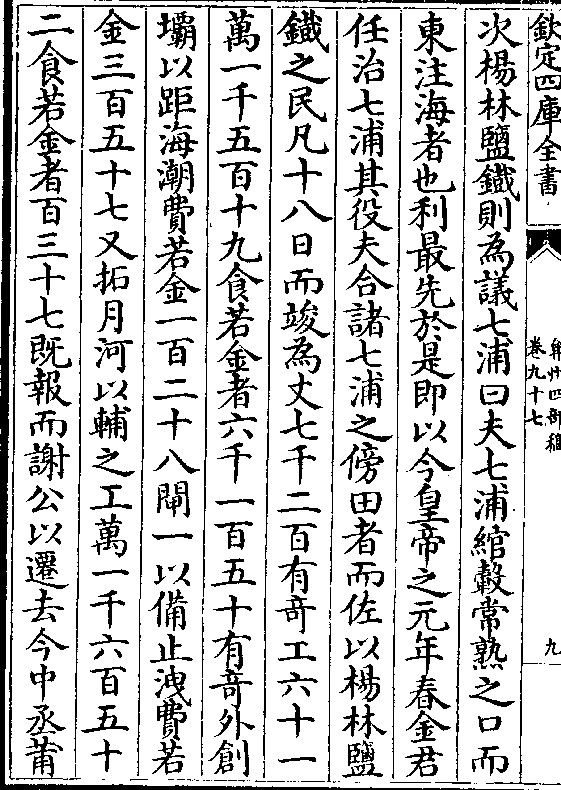 欽定四庫全書
弇州四部稿
卷九十七
九
次楊林鹽鐵則為議七浦曰夫七浦綰轂常熟之口而
東注海者也利最先於是即以今皇帝之元年春金君
任治七浦其役夫合諸七浦之傍田者而佐以楊林鹽
鐵之民凡十八日而竣為丈七千二百有竒工六十一
萬一千五百十九食若金者六千一百五十有竒外創
壩以距海潮費若金一百二十八閘一以備止洩費若
金三百五十七又拓月河以輔之工萬一千六百五十
二食若金者百三十七既報而謝公以遷去今中丞莆